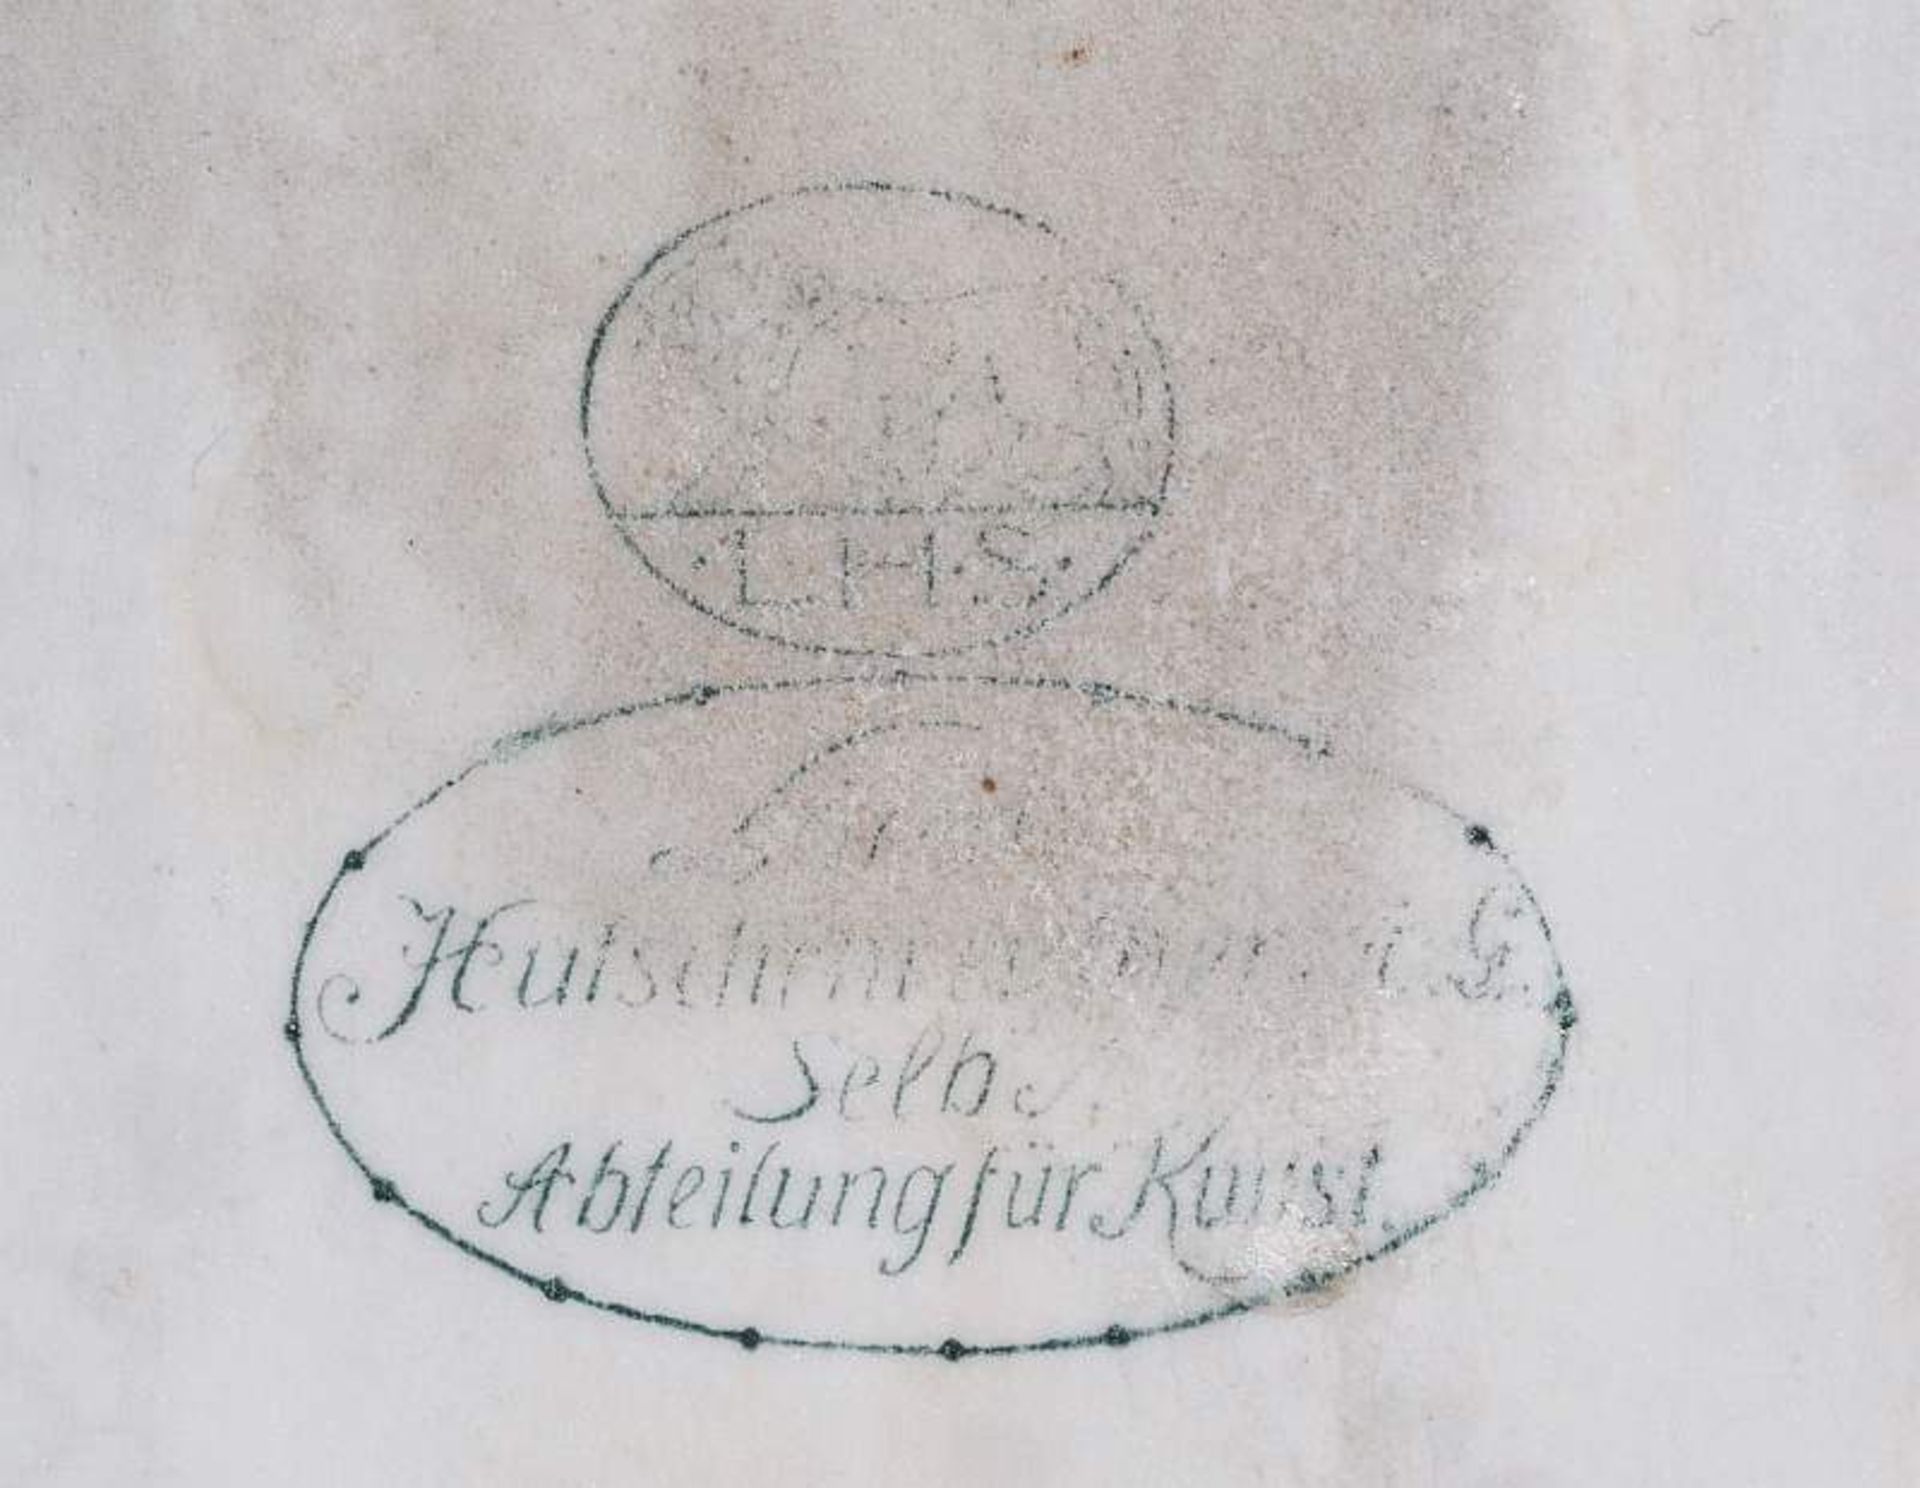 ·L.H.S·
Hutschenreuther A.G.
Selb.
Abteilung für Kunst.